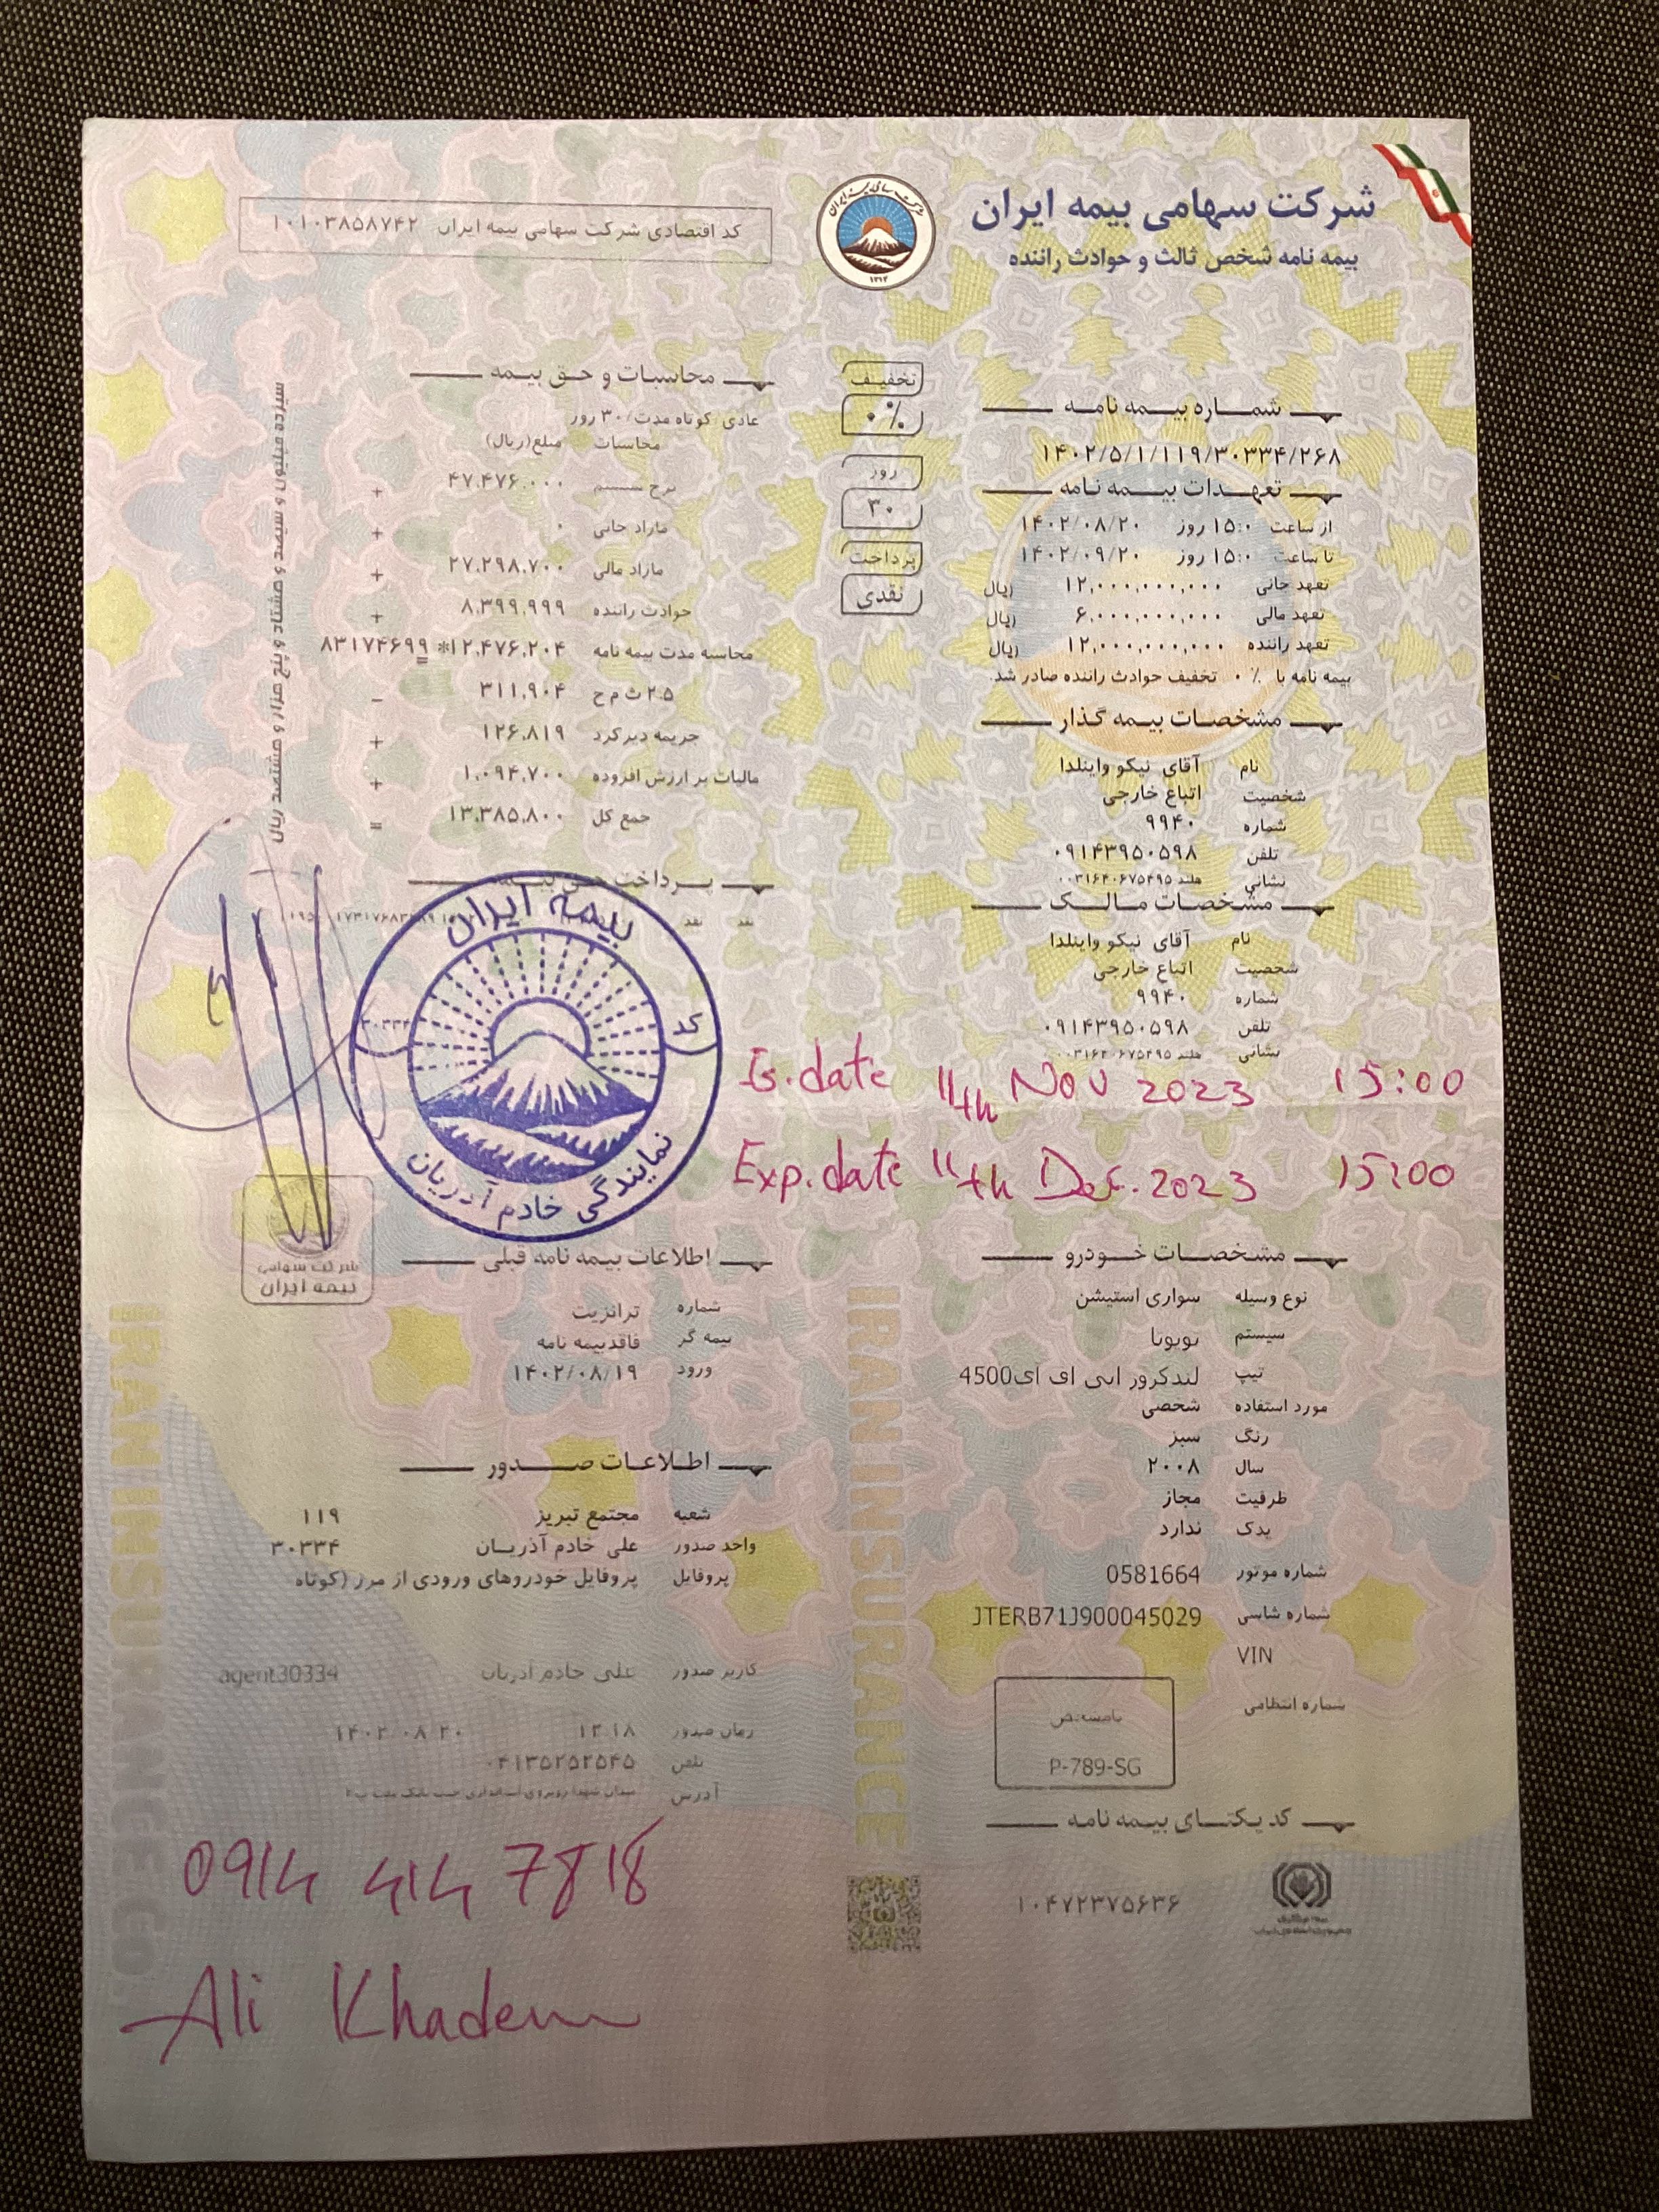 شرکت سهامی بیمه ایران
بیمه نامه شخص ثالث و حوادث راننده
کد اقتصادی شرکت سهامی بیمه ایران ۱۰۱۰۳۸۵۸۷۴۲
۱۳۱۴
شماره بیمه نامه
۱۴۰۲/۵/۱/۱۱۹/۳۰۳۳۴/۲۶۸
تعهدات بیمه نامه
از ساعت ۱۵:۰ روز ۱۴۰۲/۰۸/۲۰
تا ساعت ۱۵:۰ روز ۱۴۰۲/۰۹/۲۰
تعهد جانی ۱۲,۰۰۰,۰۰۰,۰۰۰ ریال
تعهد مالی ۶,۰۰۰,۰۰۰,۰۰۰ ریال
تعهد راننده ۱۲,۰۰۰,۰۰۰,۰۰۰ ریال
بیمه نامه با ۰ ٪ تخفیف حوادث راننده صادر شد.
مشخصات بیمه گذار
نام آقای نیکو واینلدا
شخصیت اتباع خارجی
شماره ۹۹۴۰
تلفن ۰۹۱۴۳۹۵۰۵۹۸
نشانی هلند ۰۰۳۱۶۴۰۶۷۵۴۹۵
مشخصات مالک
نام آقای نیکو واینلدا
شخصیت اتباع خارجی
شماره ۹۹۴۰
تلفن ۰۹۱۴۳۹۵۰۵۹۸
نشانی هلند ۰۰۳۱۶۴۰۶۷۵۴۹۵
Is. date 11th Nov 2023 15:00
Exp. date 11th Dec. 2023 15:00
مشخصات خودرو
نوع وسیله سواری استیشن
سیستم تویوتا
تیپ لندکروز اس اف ای4500
مورد استفاده شخصی
رنگ سبز
سال ۲۰۰۸
ظرفیت مجاز
یدک ندارد
شماره موتور 0581664
شماره شاسی JTERB71J900045029
VIN
شماره انتظامی
نامشخص
P-789-SG
کد یکتای بیمه نامه
۱۰۴۷۲۳۷۵۶۳۶
تخفیف
۰%
روز
۳۰
پرداخت
نقدی
محاسبات و حق بیمه
عادی/کوتاه مدت/۳۰ روز
محاسبات مبلغ(ریال)
۴۷,۴۷۶,۰۰۰ +
مازاد جانی ۰ +
مازاد مالی ۲۷,۲۹۸,۷۰۰ +
حوادث راننده ۸,۳۹۹,۹۹۹ +
محاسبه مدت بیمه نامه ۱۲,۴۷۶,۲۰۴* ۸۳۱۷۴۶۹۹ =
۲.۵ ث م ح ۳۱۱,۹۰۴ -
جریمه دیرکرد ۱۲۶,۸۱۹ +
مالیات بر ارزش افزوده ۱,۰۹۴,۷۰۰ +
جمع کل ۱۳,۳۸۵,۸۰۰ =
سیزده میلیون و سیصد و هشتاد و پنج هزار و هشتصد ریال
پرداخت حق بیمه
نقد نقد
بیمه ایران
کد ۳۰۳۳۴
نمایندگی خادم آذریان
شرکت سهامی
بیمه ایران
اطلاعات بیمه نامه قبلی
شماره ترانزیت
بیمه گر فاقدبیمه نامه
ورود ۱۴۰۲/۰۸/۱۹
اطلاعات صدور
شعبه مجتمع تبریز ۱۱۹
واحد صدور علی خادم آذریان ۳۰۳۳۴
پروفایل پروفایل خودروهای ورودی از مرز (کوتاه
کاربر صدور علی خادم آذریان agent30334
زمان صدور ۱۲:۱۸ ۱۴۰۲/۰۸/۲۰
تلفن ۰۴۱۳۵۲۵۲۵۴۵
آدرس
IRAN INSURANCE CO.
IRAN INSURANCE
0914 414 7818
Ali Khadem